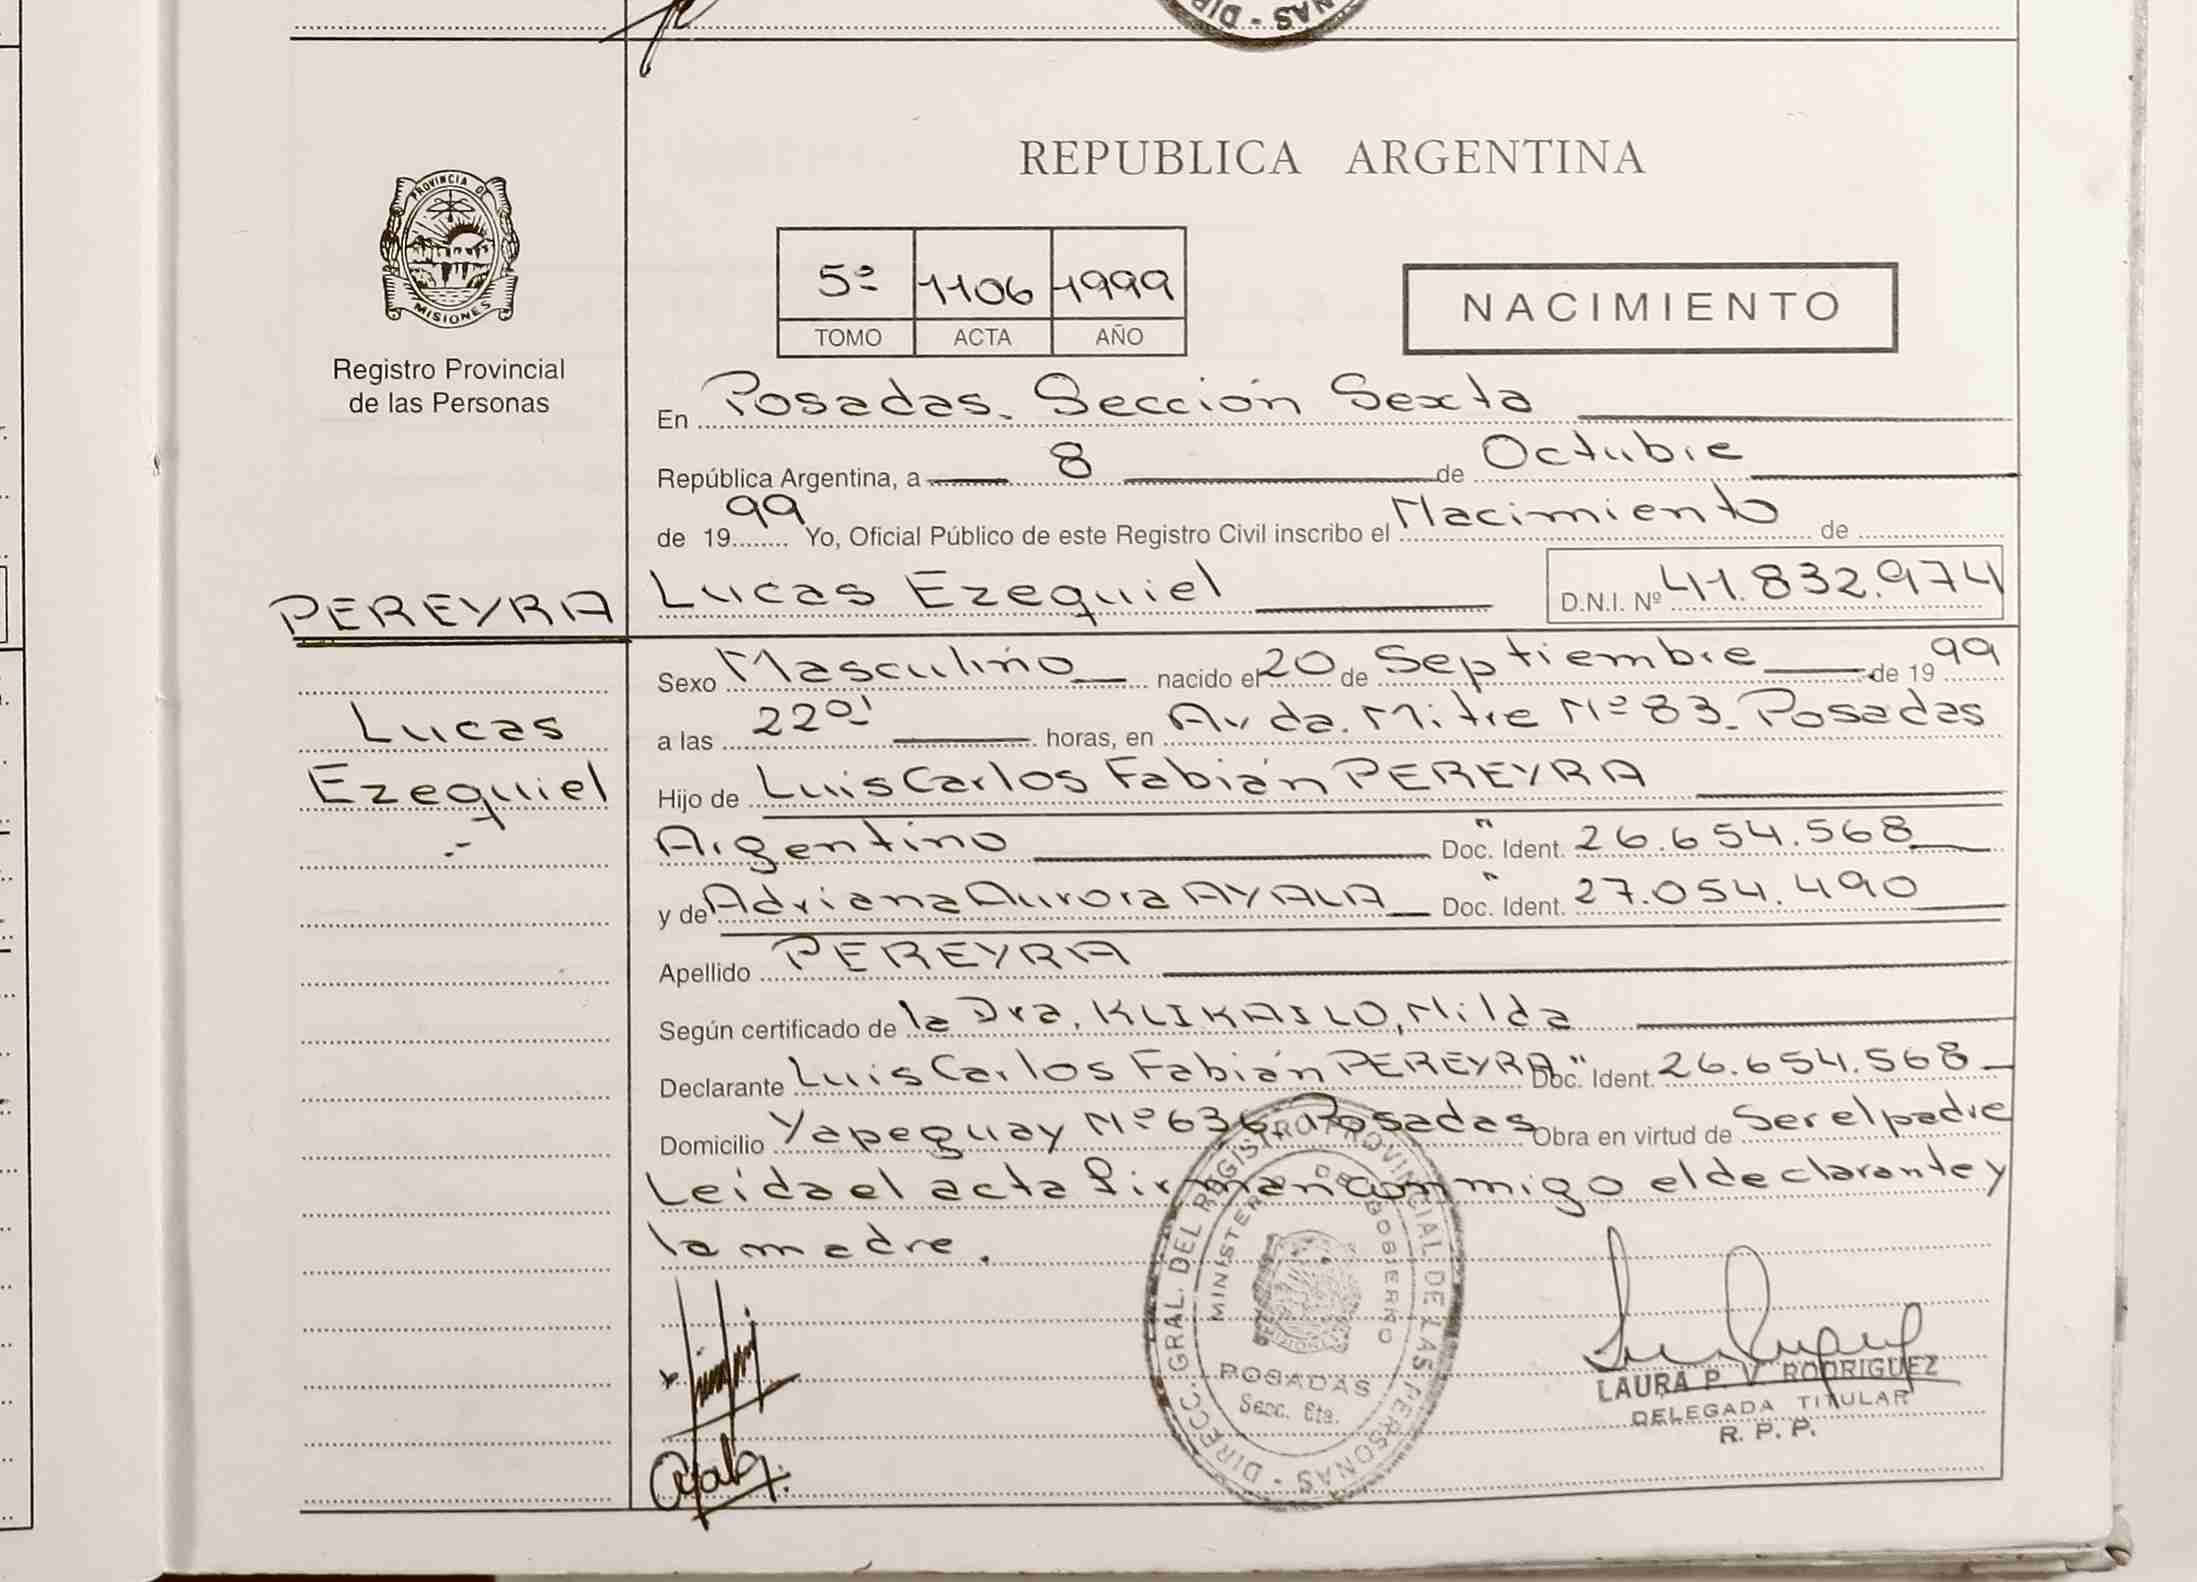 DIR - SAN
PROVINCIA DE
MISIONES
Registro Provincial
de las Personas
PEREYRA
Lucas
Ezequiel
.-
REPUBLICA ARGENTINA
5º 1106 1999
TOMO ACTA AÑO
NACIMIENTO
En Posadas. Sección Sexta
República Argentina, a 8 de Octubre
de 1999 Yo, Oficial Público de este Registro Civil inscribo el Nacimiento de
Lucas Ezequiel D.N.I. Nº 41.832.974
Sexo Masculino nacido el 20 de Septiembre de 1999
a las 22 01 horas, en Avda. Mitre Nº 83. Posadas
Hijo de Luis Carlos Fabián PEREYRA
Argentino Doc. Ident. 26.654.568
y de Adriana Aurora AYALA Doc. Ident. 27.054.490
Apellido PEREYRA
Según certificado de la Dra. KLIKAILO, Nilda
Declarante Luis Carlos Fabián PEREYRA Doc. Ident. 26.654.568
Domicilio Yapeguay Nº 636, Posadas Obra en virtud de Ser el padre
Leida el acta firman conmigo el declarante y
la madre.
DIRECC. GRAL. DEL REGISTRO PROVINCIAL DE LAS PERSONAS
MINISTERIO DE GOBIERNO
MISIONES
POSADAS
Secc. 6ta.
Ayala
LAURA P. V. RODRIGUEZ
DELEGADA TITULAR
R. P. P.